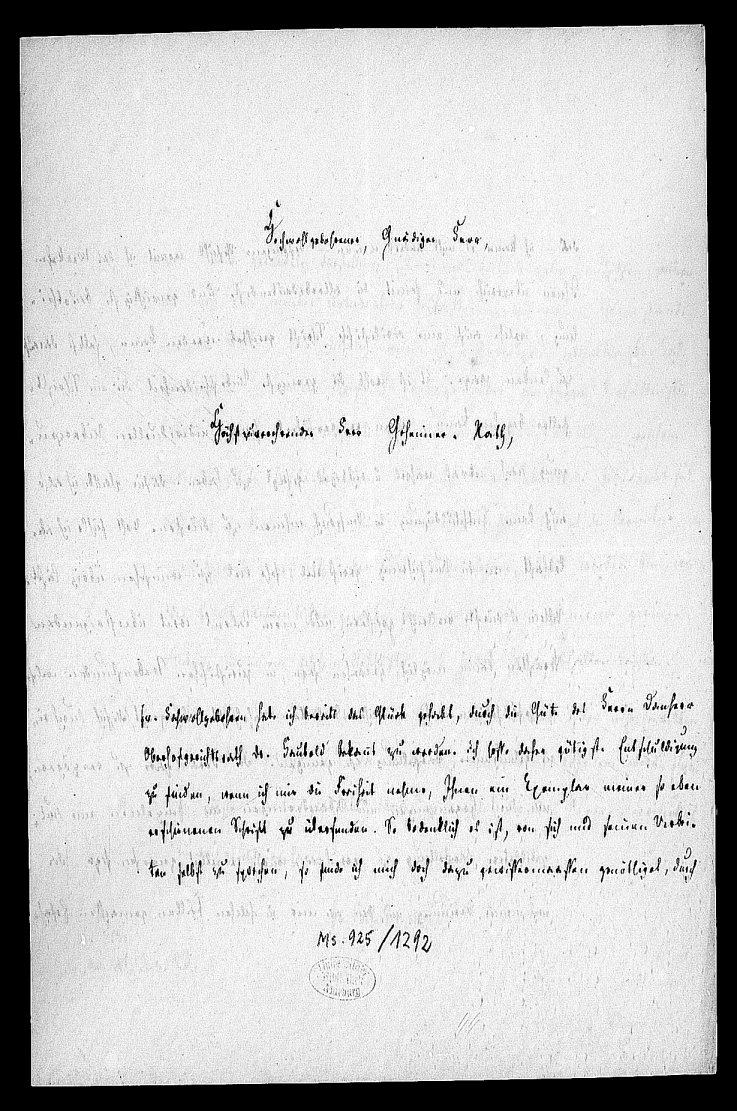 Hochwohlgeborener, Gnädiger Herr,
Höchstzuverehrender Herr Geheimer-Rath,
Ew. Hochwohlgebohren habe ich bereits das Glück gehabt, durch die Güte des Herrn Domherr
Oberhofgerichtsrath Dr. Haubold bekannt zu werden. Ich hoffe daher gütigst Entschuldigung
zu finden, wenn ich mir die Freiheit nehme, Ihnen ein Exemplar meiner so eben
erschienenen Schrift zu übersenden. So bedenklich es ist, von sich und seinen Arbei-
ten selbst zu sprechen, so finde ich mich doch dazu gewissermaassen genöthiget, durch
Ms. 925/1292